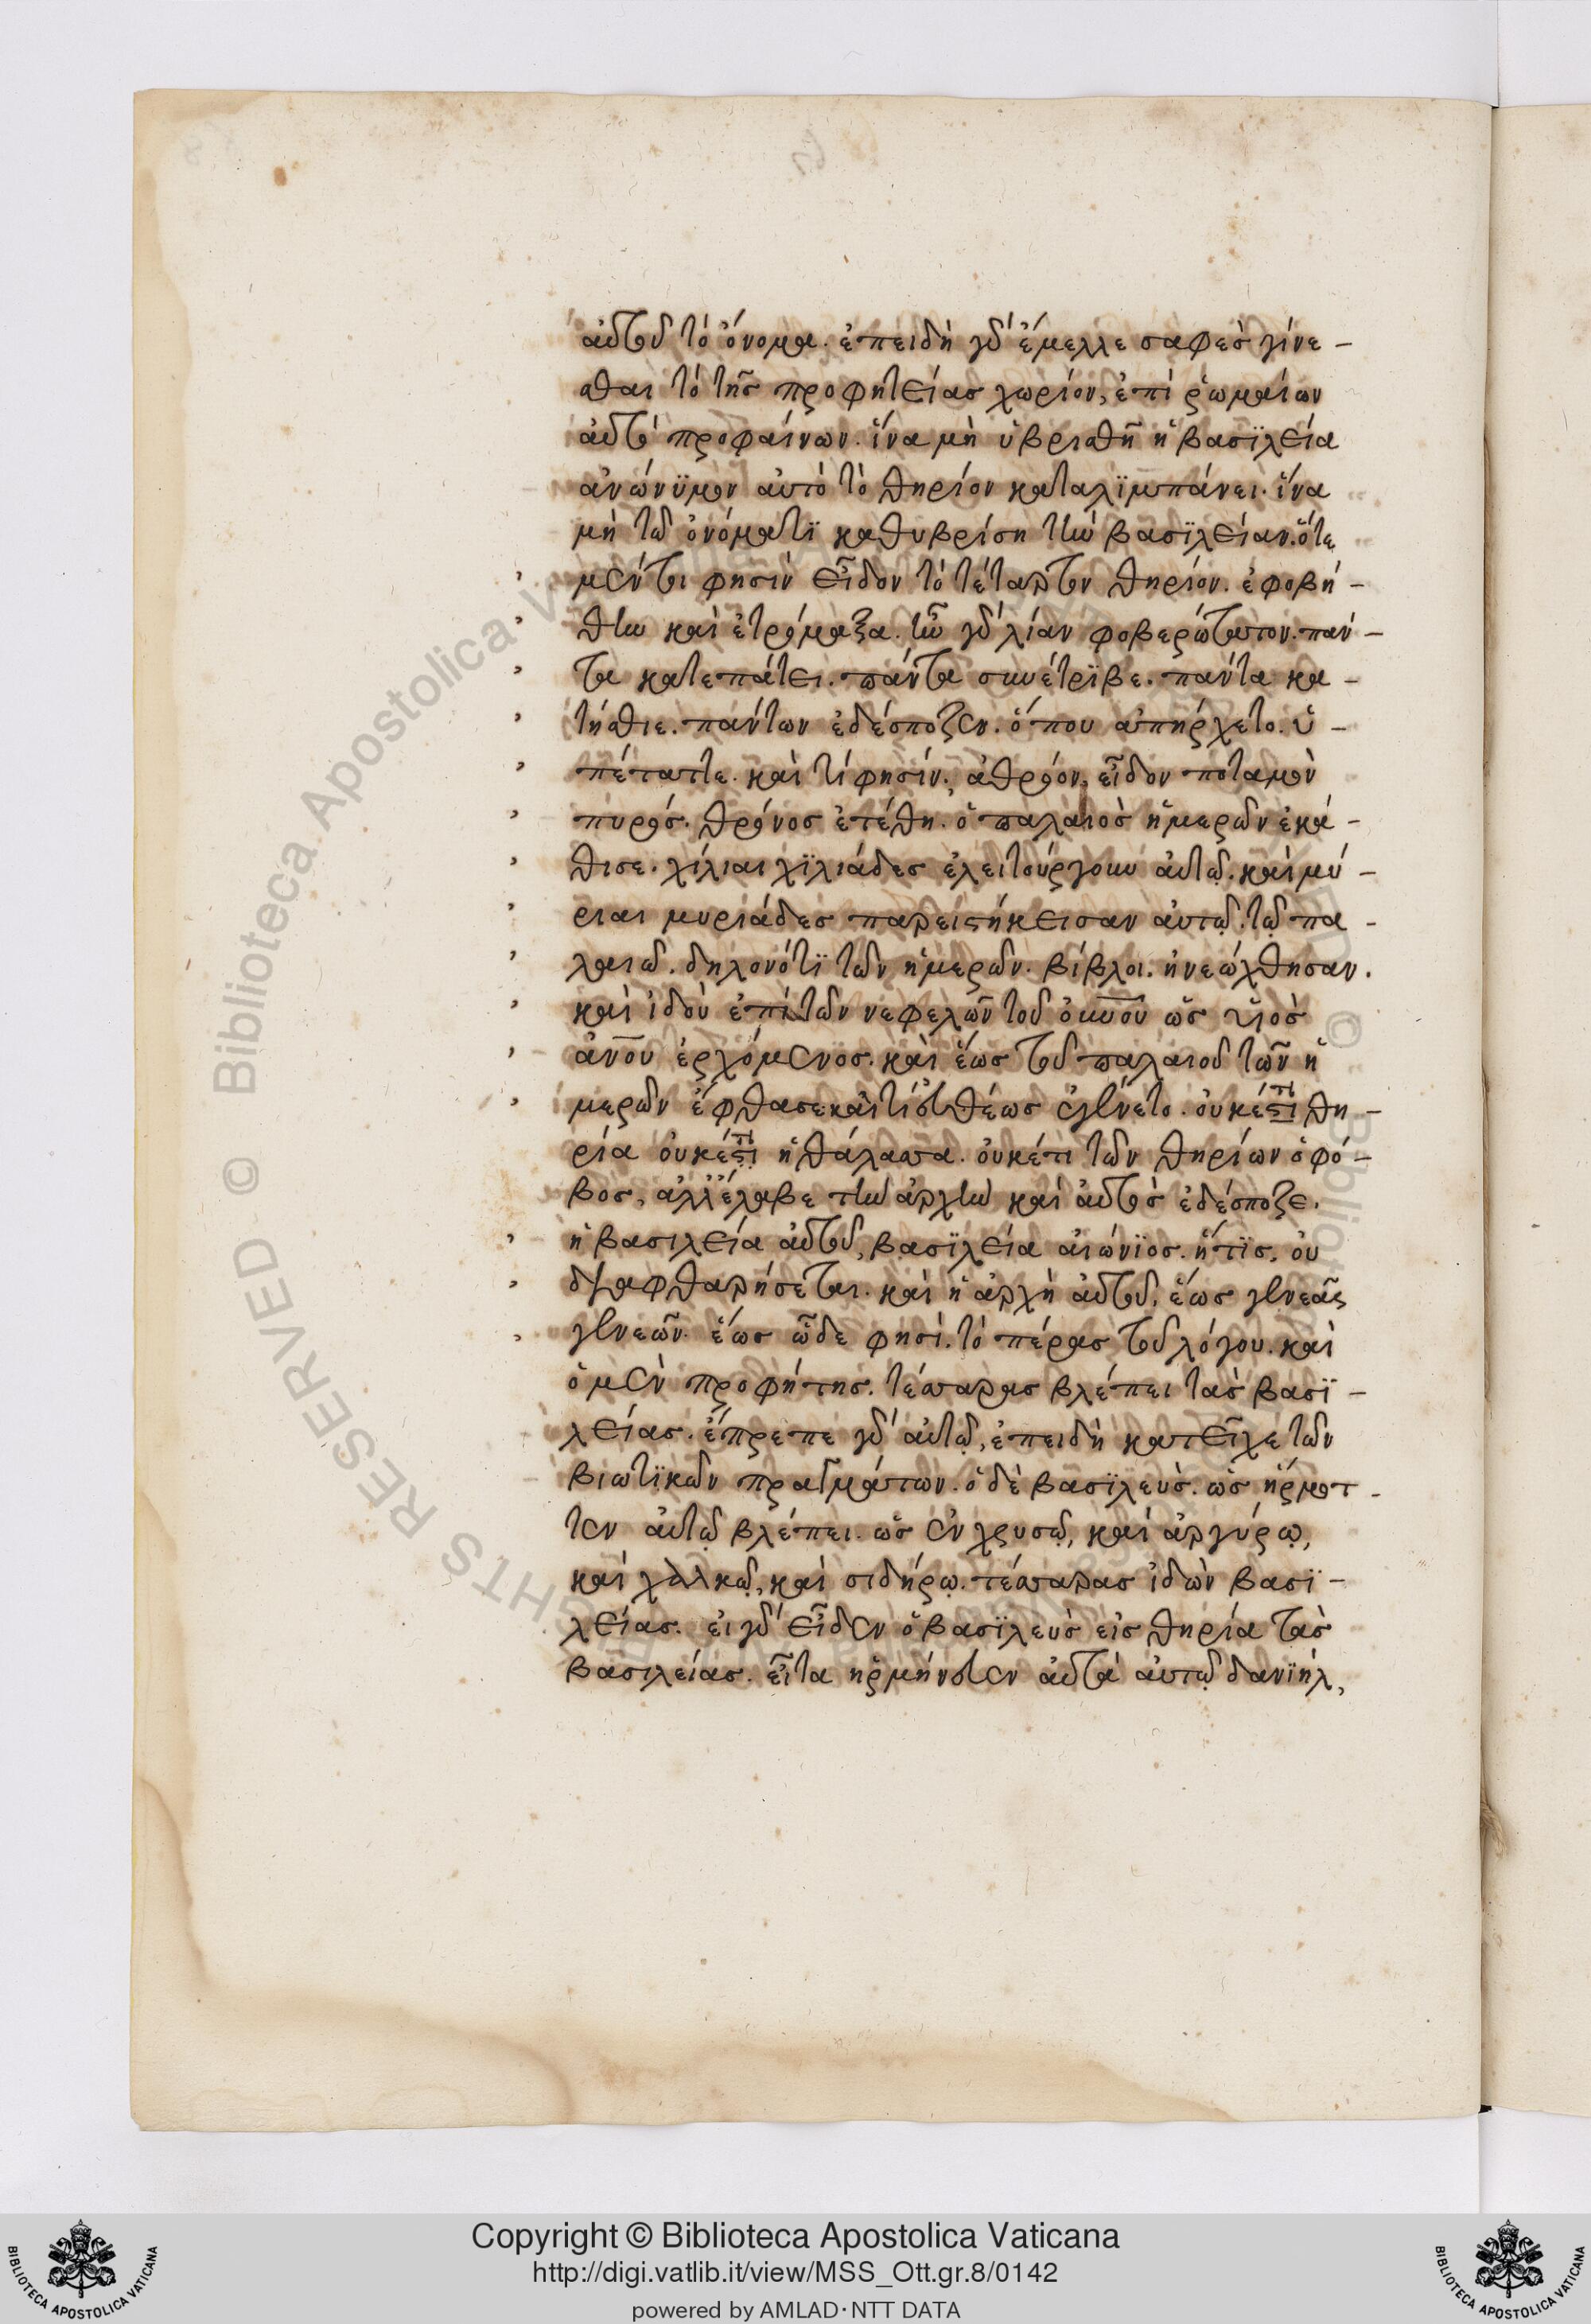 αὐτοῦ τὸ ὄνομα. ἐπειδὴ γὰρ ἔμελλε σαφὲσ γίνε-
σθαι τὸ τῆσ προφητείασ χωρίον, ἐπὶ ῥωμαίων
αὐτὸ προφαίνων. ἵνα μὴ ὑβρισθῆ ἡ βασϊλεία
ἀνώνϋμον αὐτὸ τὸ θηρίον καταλϊμπάνει. ἵνα
μὴ τῶ ὀνόματϊ καθυβρίση τὴν βασϊλείαν. ὅτε
μέντοι φησὶν εἶδον τὸ τέταρτον θηρίον. ἐφοβή-
θην καὶ ἐτρόμαξα. ἦν γὰρ λίαν φοβερώτατον. πάν-
τα κατεπάτει. πάντα συνέτρϊβε. πάντα κα-
τήσθιε. πάντων ἐδέσποζεν. ὅπου ἀπήρχετο. ὑ-
πέταττε. καὶ τί φησίν, ἀθρόον, εἶδον ποταμὸν
πυρόσ. θρόνοσ ἐτέθη. ὁ παλαιὸσ ἡμερῶν ἐκά-
θισε. χίλιαι χϊλιάδεσ ἐλειτούργουν αὐτῶ. καὶ μύ-
ριαι μυριάδεσ παρειστήκεισαν αὐτῶ. τῶ πα-
λαιῶ. δηλονότϊ τῶν ἡμερῶν. βίβλοι. ἠνεώχθησαν.
καὶ ἰδοὺ ἐπὶ τῶν νεφελῶν τοῦ οὐνοῦ ὡσ υἱὸσ
ἀνου ἐρχόμενοσ. καὶ ἕωσ τοῦ παλαιοῦ τῶν ἡ
μερῶν ἔφθασε καὶ τί εὐθέωσ ἐγένετο. οὐκέτι θη-
ρία οὐκέτι ἡ θάλασσα. οὐκέτι τῶν θηρίων ὁ φό-
βοσ, ἀλλ' ἔλαβε τὴν ἀρχὴν καὶ αὐτὸσ ἐδέσποζε.
ἡ βασιλεία αὐτοῦ, βασϊλεία αἰώνϊοσ. ἥτϊσ. οὐ
διαφθαρήσεται. καὶ ἡ ἀρχὴ αὐτοῦ, ἕωσ γενεᾶς
γενεῶν. ἕωσ ὧδε φησὶ. τὸ πέρασ τοῦ λόγου. καὶ
ὁ μὲν προφήτησ. τέσσαρασ βλέπει τὰσ βασϊ-
λείασ. ἔπρεπε γὰρ αὐτῶ, ἐπειδὴ κατεῖχε τῶν
βιωτϊκῶν πραγμάτων. ὁ δὲ βασϊλεὺσ. ὡσ ἥρμοτ-
τεν αὐτῶ βλέπει. ὡσ ἐν χρυσῶ, καὶ ἀργύρω,
καὶ χαλκῶ, καὶ σιδήρω. τέσσαρασ ἰδὼν βασϊ-
λείασ. εἰ γὰρ εἶδεν ὁ βασϊλεὺσ εἰσ θηρία τὰσ
βασιλείασ. εἶτα ἡρμήνευεν αὐτὰ αὐτῶ δανϊήλ,
Copyright © Biblioteca Apostolica Vaticana
http://digi.vatlib.it/view/MSS_Ott.gr.8/0142
powered by AMLAD·NTT DATA